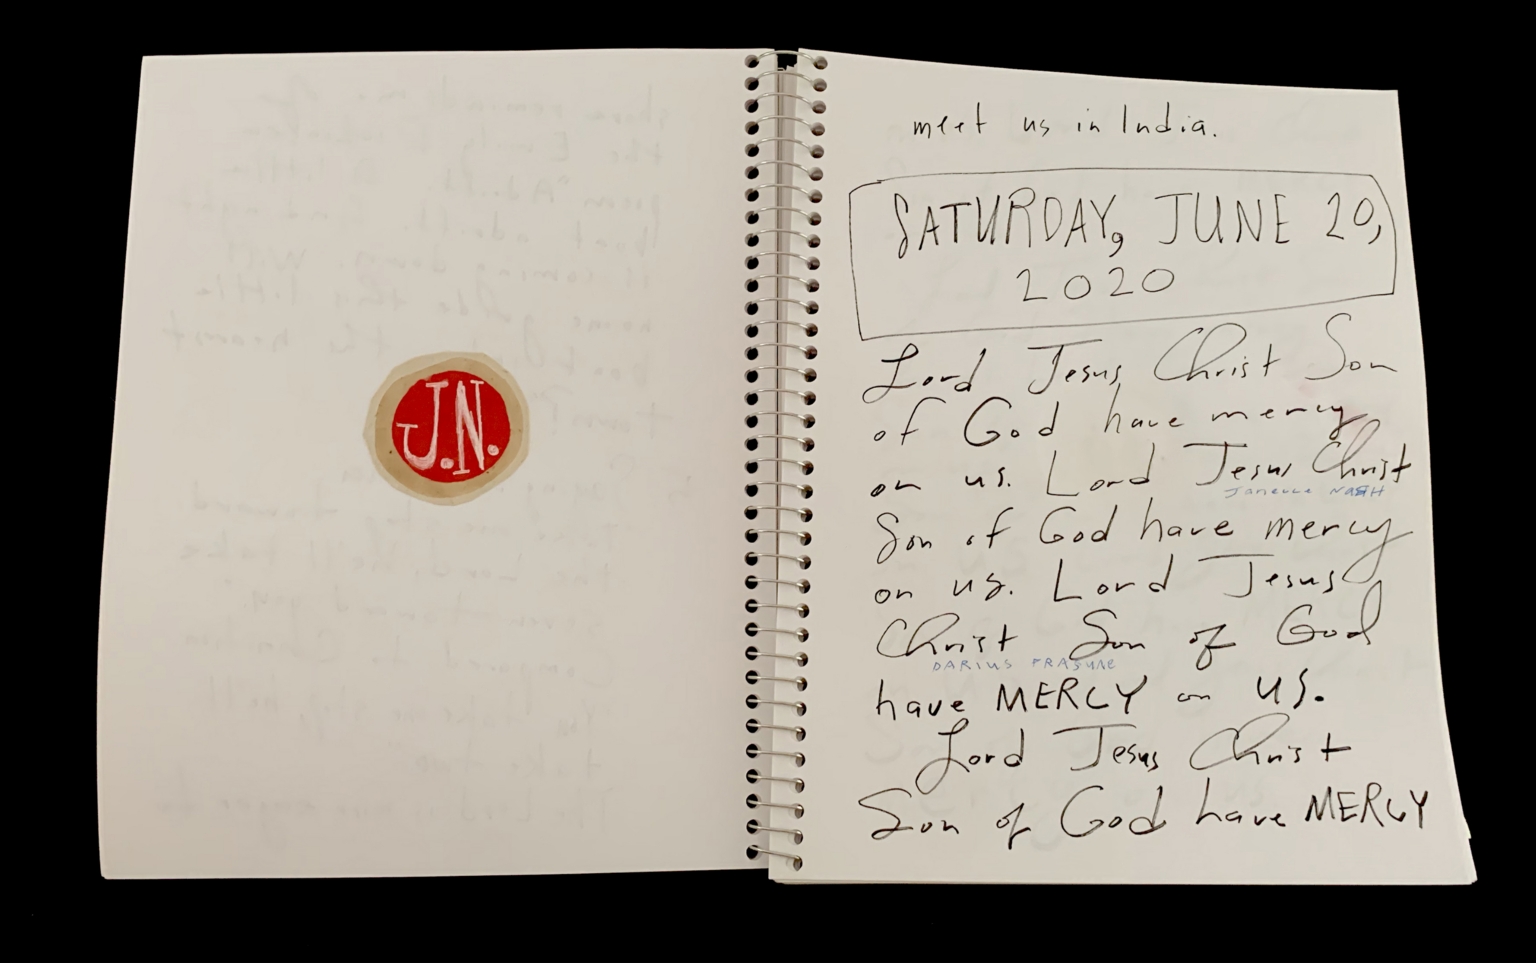 J.N.
meet us in India.
SATURDAY, JUNE 20,
2020
Lord Jesus Christ Son
of God have mercy
on us. Lord Jesus Christ
Son of God have mercy
on us. Lord Jesus
Christ Son of God
DARIUS FRASURE
have MERCY on US.
Lord Jesus Christ
Son of God have MERCY